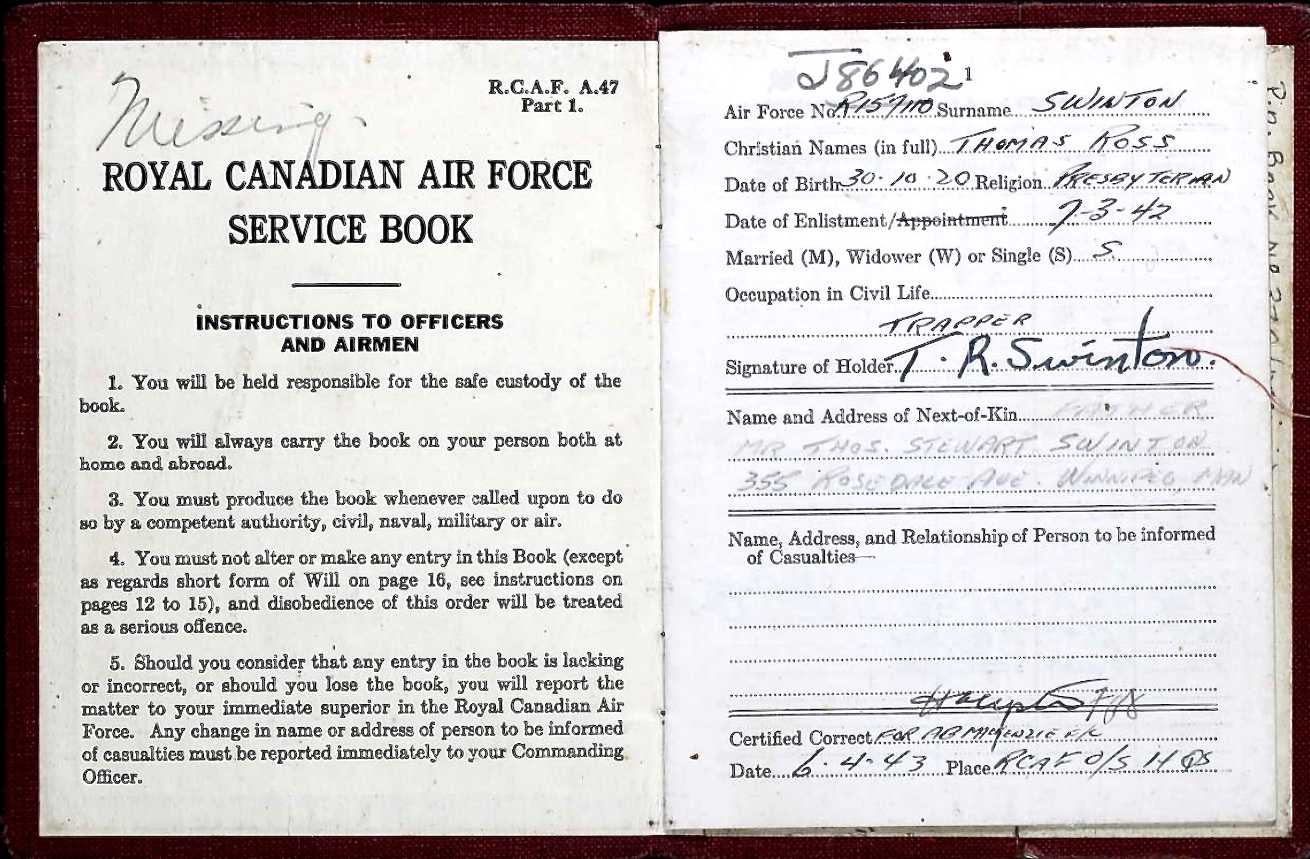 Missing.
R.C.A.F. A.47
Part 1.
ROYAL CANADIAN AIR FORCE
SERVICE BOOK
INSTRUCTIONS TO OFFICERS
AND AIRMEN
1. You will be held responsible for the safe custody of the
book.
2. You will always carry the book on your person both at
home and abroad.
3. You must produce the book whenever called upon to do
so by a competent authority, civil, naval, military or air.
4. You must not alter or make any entry in this Book (except
as regards short form of Will on page 16, see instructions on
pages 12 to 15), and disobedience of this order will be treated
as a serious offence.
5. Should you consider that any entry in the book is lacking
or incorrect, or should you lose the book, you will report the
matter to your immediate superior in the Royal Canadian Air
Force. Any change in name or address of person to be informed
of casualties must be reported immediately to your Commanding
Officer.
J86402
1
Air Force No. R157110 Surname SWINTON
Christian Names (in full) THOMAS ROSS
Date of Birth 30·10·20 Religion PRESBYTERIAN
Date of Enlistment/Appointment 7-3-42
Married (M), Widower (W) or Single (S) S
Occupation in Civil Life
TRAPPER
Signature of Holder T. R. Swinton.
Name and Address of Next-of-Kin FATHER
MR THOS. STEWART SWINTON
355 ROSEDALE AVE. WINNIPEG, MAN
Name, Address, and Relationship of Person to be informed
of Casualties—
Certified Correct FOR AB MCKENZIE F/L
Date 6·4·43 Place RCAF O/S HQS
R.A. BOOK NO.